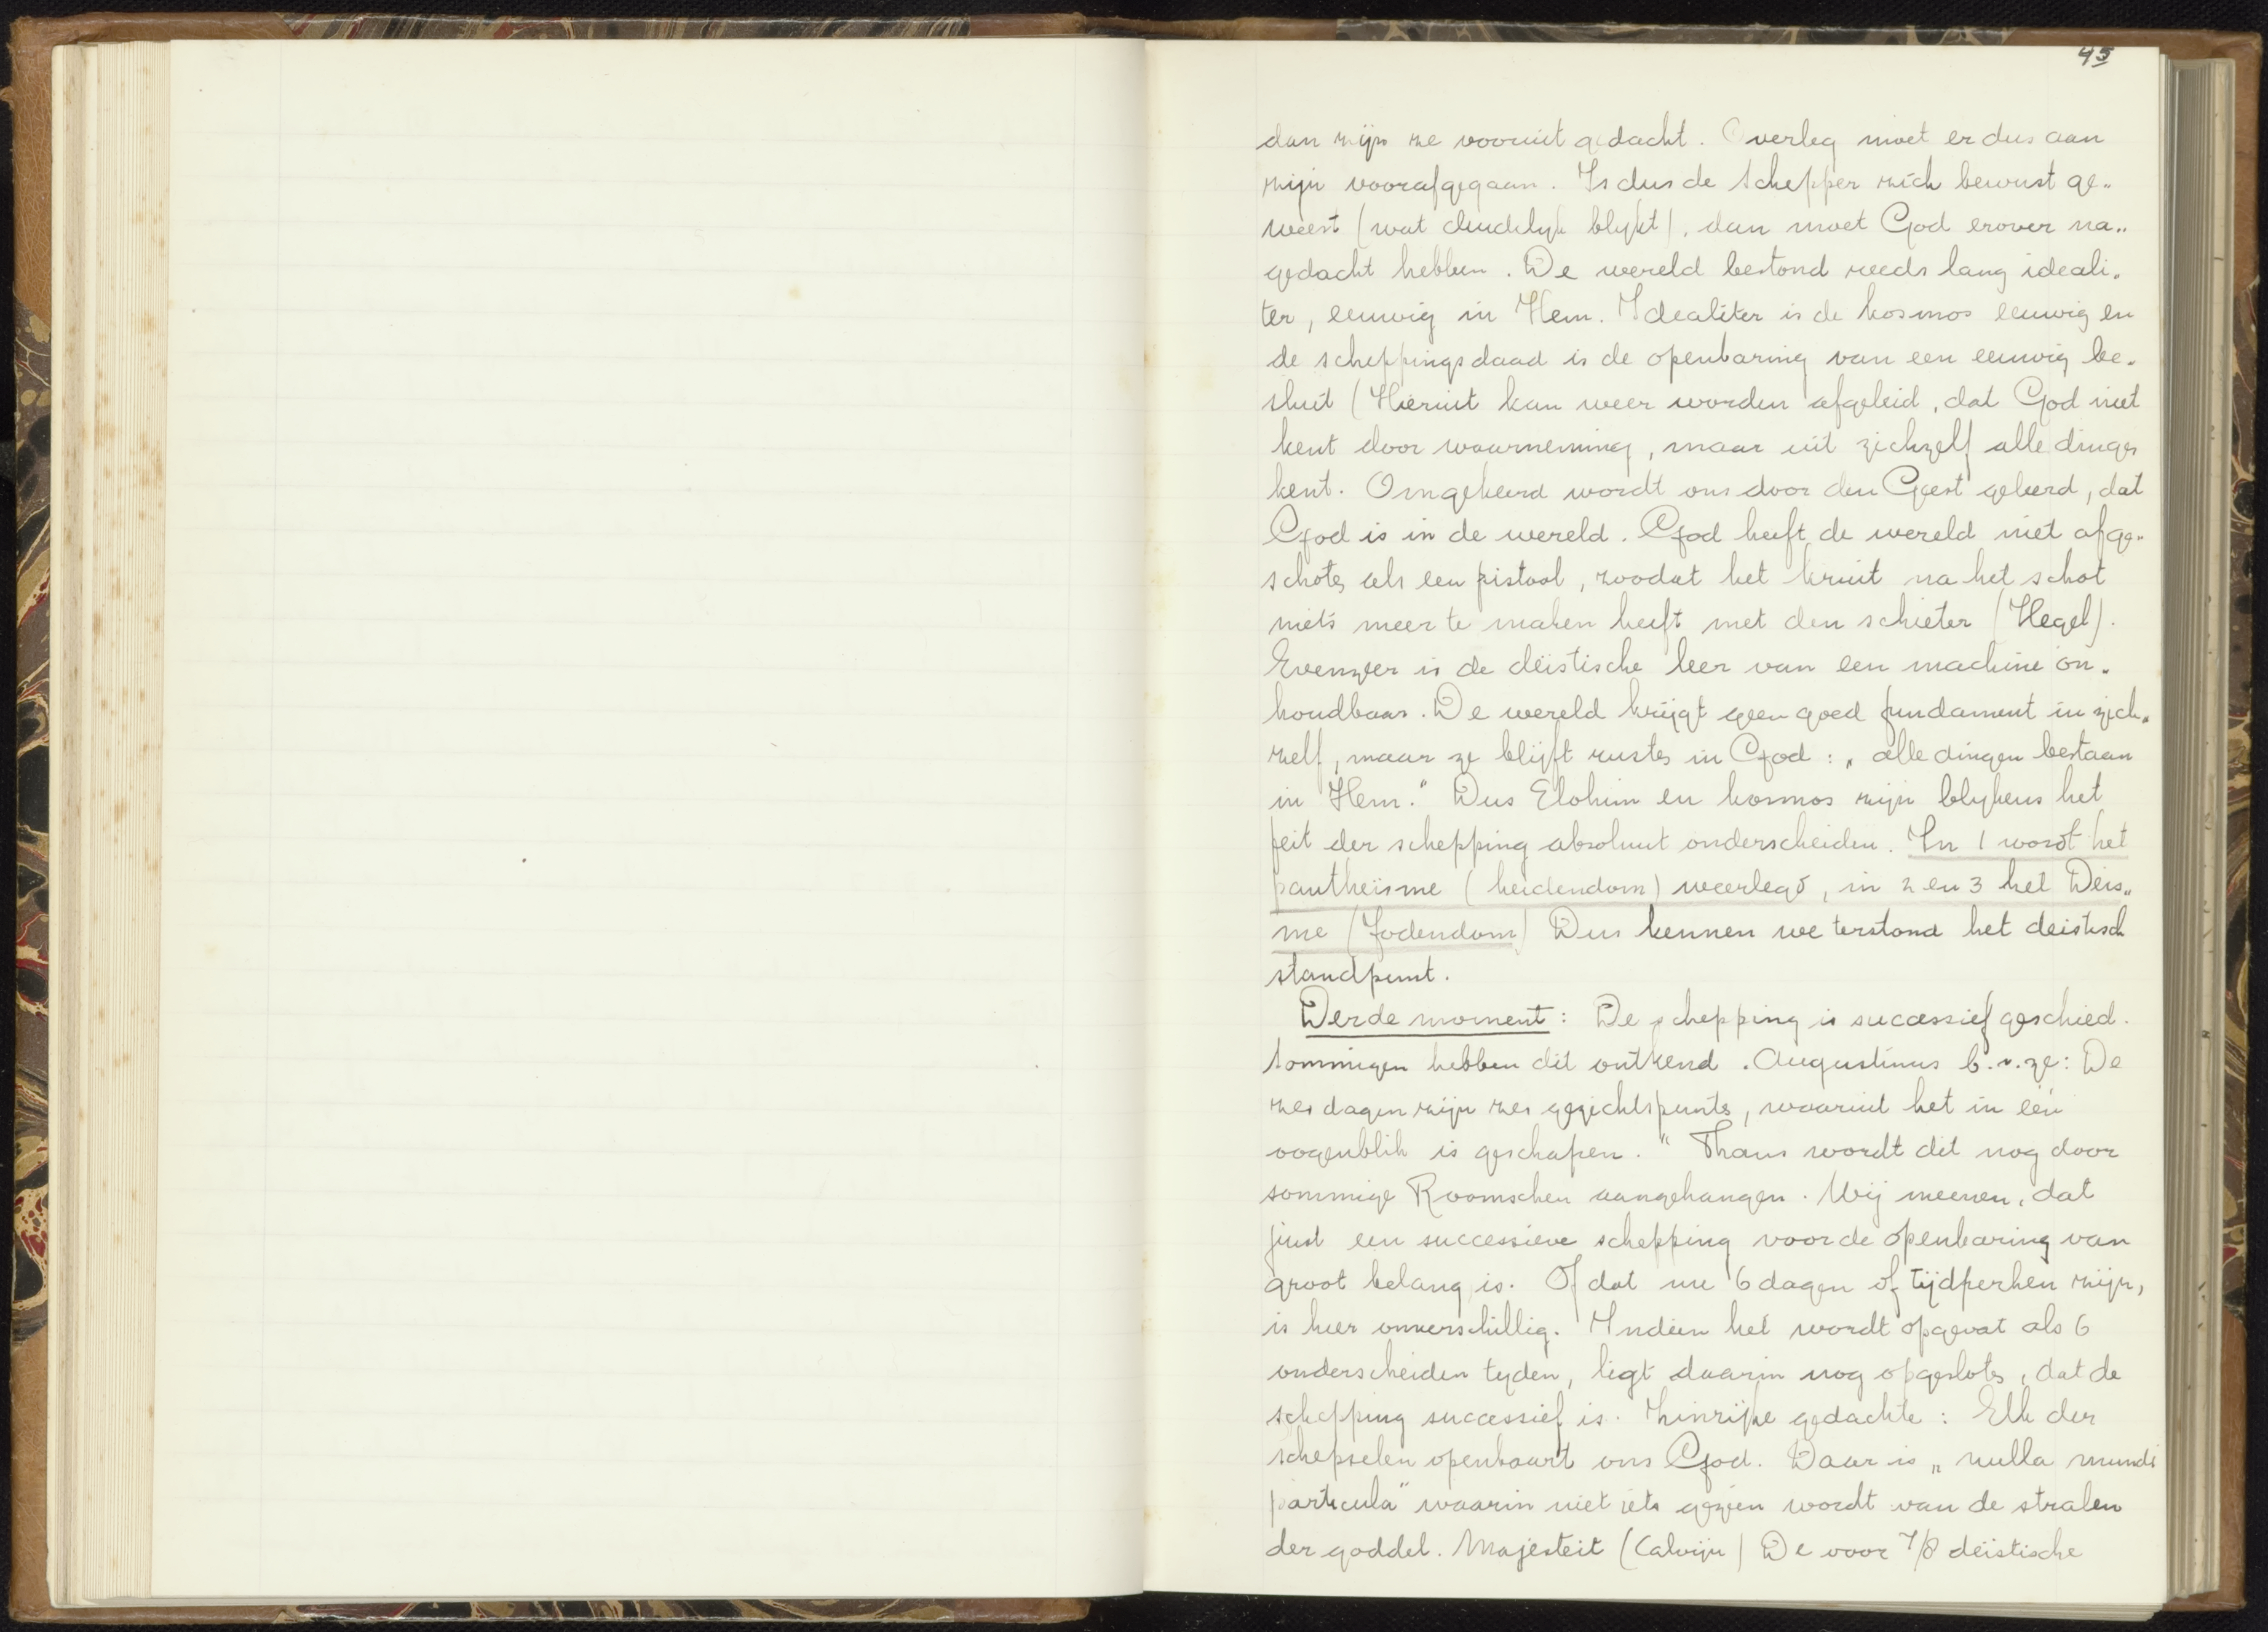 45
dan zijn ze vooruit gedacht. Overleg moet er dus aan
zijn voorafgegaan. Is dus de Schepper zich bewust ge„
weest (wat duidelyk blykt), dan moet God erover na„
gedacht hebben. De wereld bestond reeds lang ideali„
ter, eeuwig in Hem. Idealiter is de kosmos eeuwig en
de scheppingsdaad is de openbaring van een eeuwig be„
sluit (Hieruit kan weer worden afgeleid, dat God niet
kent door waarneming, maar uit zichzelf alle dingen
kent. Omgekeerd wordt ons door den Geest geleerd, dat
God is in de wereld. God heeft de wereld niet afge„
schoten als een pistool, zoodat het kruit na het schot
niets meer te maken heeft met den schieter (Hegel).
Evenzeer is de deïstische leer van een machine on„
houdbaar. De wereld krijgt geen goed fundament in zich„
zelf, maar ze blijft rusten in God: „alle dingen bestaan
in Hem." Dus Elohim en kosmos zijn blykens het
feit der schepping absoluut onderscheiden. In 1 wordt het
pantheïsme (heidendom) weerlegd, in 2 en 3 het Deïs„
me (Jodendom) Dus kennen we terstond het deistisch
standpunt.
Derde moment: De schepping is successief geschied.
Sommigen hebben dit ontkend. Augustinus b.v. ze: De
zes dagen zijn zes gezichtspunten, waaruit het in één
oogenblik is geschapen." Thans wordt dit nog door
sommige Roomschen aangehangen. Wij meenen, dat
juist een successieve schepping voor de openbaring van
groot belang is. Of dat nu 6 dagen of tijdperken zijn,
is hier onverschillig. Indien het wordt opgevat als 6
onderscheiden tyden, ligt daarin nog opgesloten, dat de
schepping successief is. Zinrijke gedachte: Elk der
schepselen openbaart ons God. Daar is „nulla mundi
particula" waarin niet iets gezien wordt van de stralen
der goddel. Majesteit (Calvijn) De voor 7/8 deïstische